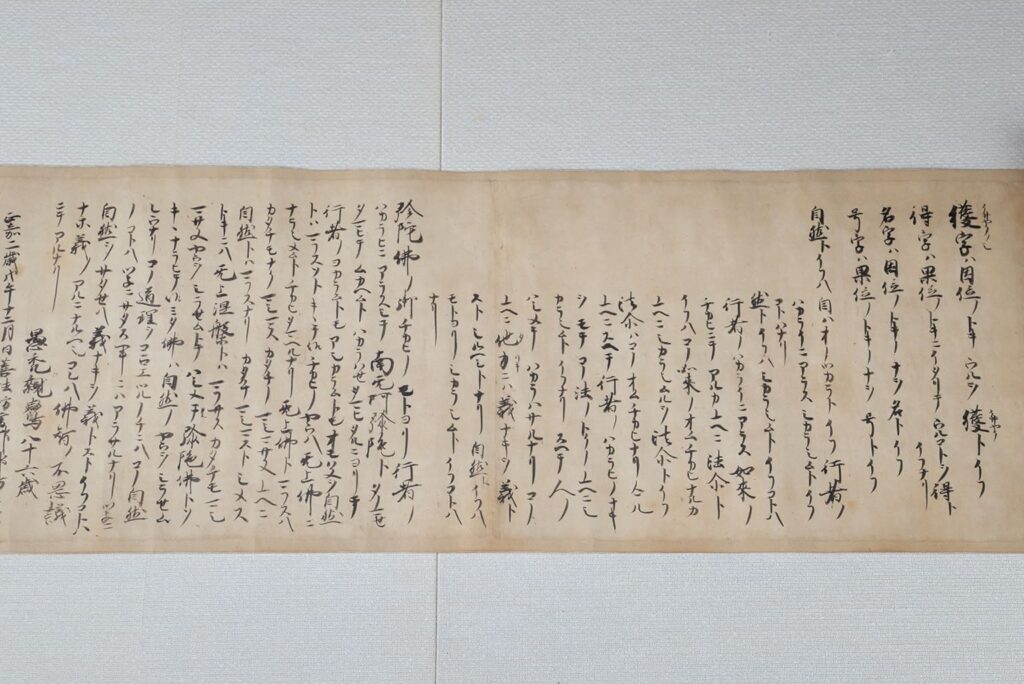 獲字ハ因位ノトキウルヲ獲トイフ
得字ハ果位ノトキニイタリテウルコトヲ得ト
イフナリ
名字ハ因位ノトキノナヲ名トイフ
号字ハ果位ノトキノナヲ号トイフ
自然トイフハ自ハオノツカラトイフ行者ノ
ハカラヒニアラスシカラシムトイフ
コトハナリ
然トイフハシカラシムトイフコトハ
行者ノハカラヒニアラス如来ノ
チカヒニテアルカユヘニ法尓ト
イフハコノ如来ノオムチカヒナルカ
ユヘニシカラシムルヲ法尓トイフ
法尓ハコノオムチカヒナリケル
ユヘニスヘテ行者ノハカラヒノナキ
ヲモテコノ法ノトクノユヘニシ
カラシムトイフナリスヘテ人ノ
ハシメテハカラハサルナリコノ
ユヘニ他力ニハ義ナキヲ義ト
ストシルヘシトナリ自然トイフハ
モトヨリシカラシムトイフコトハ
ナリ
弥陀佛ノ御チカヒノモトヨリ行者ノ
ハカラヒニアラスシテ南无阿弥陀トタノマセ
タマヒテムカヘムトハカラハセタマヒタルニヨリテ
行者ノヨカラムトモアシカラムトモオモハヌヲ自然
トハマフスソトキヽテ候チカヒノヤウハ无上佛ニ
ナラシメムトチカヒタマヘルナリ无上佛トマフスハ
カタチモナクマシマスカタチノマシマサヌユヘニ
自然トハマフスナリカタチマシマストシメス
トキニハ无上涅槃トハマフサスカタチモマシ
マサヌヤウヲシラセムトテハシメテ弥陀佛トソ
キヽナラヒテ候ミタ佛ハ自然ノヤウヲシラセム
レウナリコノ道理ヲコヽロエツルノチニハコノ自然
ノコトハツネニサタスヘキニハアラサルナリツネニ
自然ヲサタセハ義ナキヲ義トストイフコトハ
ナホ義ノアルニナルヘシコレハ佛智ノ不思議
ニテアルナリ
愚禿親鸞八十六歳
正嘉二歳戊午十二月日善法方